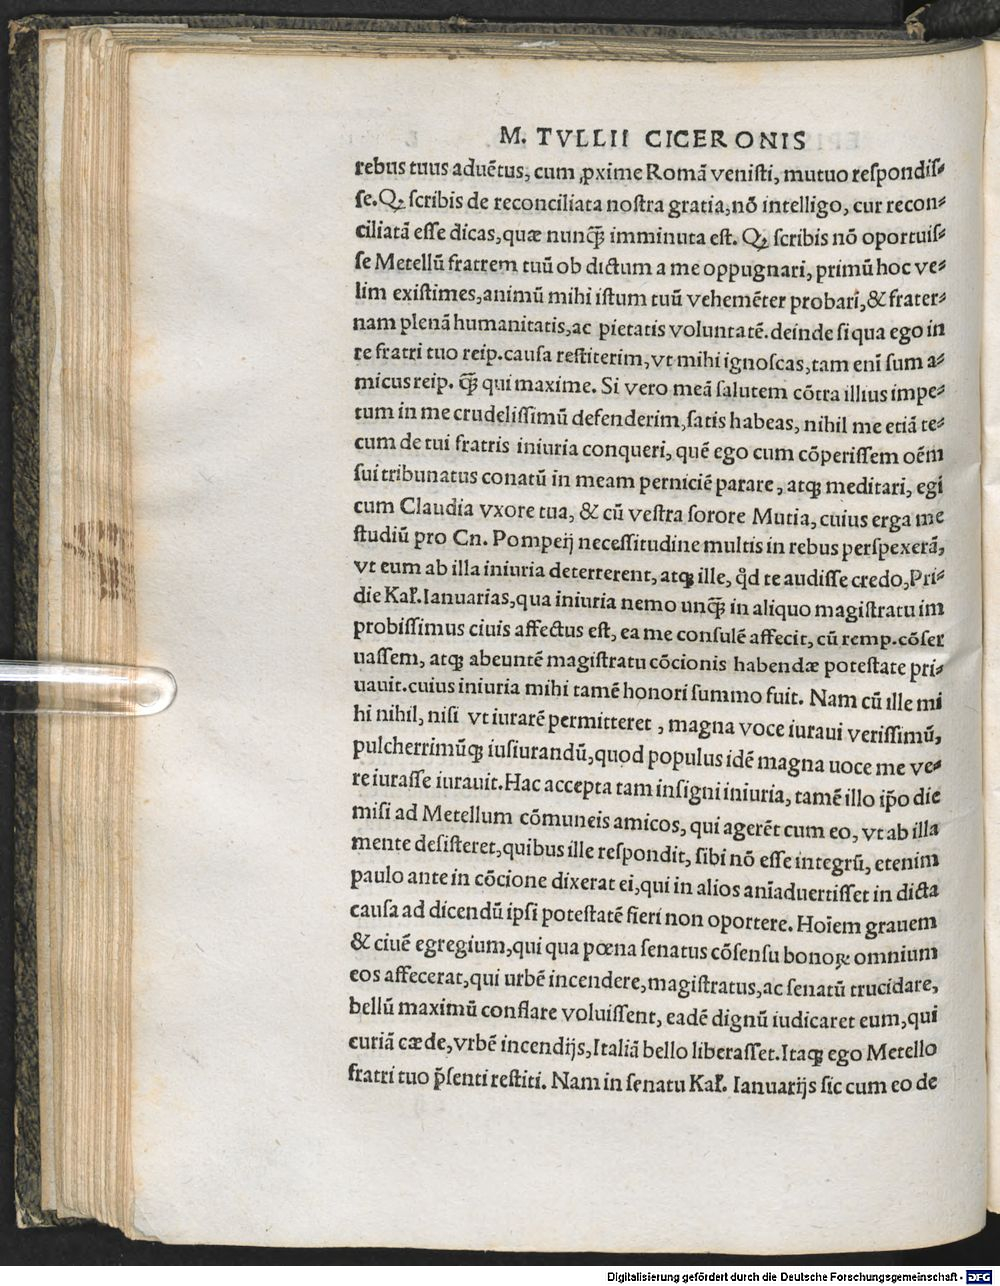 M. TVLLII CICERONIS
rebus tuus aduẽtus, cum ꝓxime Romã veniſti, mutuo reſpondiſ-
ſe. Qꝫ ſcribis de reconciliata noſtra gratia, nõ intelligo, cur recon-
ciliatã eſſe dicas, quæ nunꝗ̃ imminuta eſt. Qꝫ ſcribis nõ oportuiſ-
ſe Metellũ fratrem tuũ ob dictum a me oppugnari, primũ hoc ve-
lim exiſtimes, animũ mihi iſtum tuũ vehemẽter probari, & frater-
nam plenã humanitatis, ac pietatis voluntatẽ. deinde ſi qua ego in
re fratri tuo reip. cauſa reſtiterim, vt mihi ignoſcas, tam eni ſum a-
micus reip. ꝗ̃ qui maxime. Si vero meã ſalutem cõtra illius impe-
tum in me crudeliſſimũ defenderim, ſatis habeas, nihil me etiã te-
cum de tui fratris iniuria conqueri, quẽ ego cum cõperiſſem oẽm
ſui tribunatus conatũ in meam perniciẽ parare, atqꝫ meditari, egi
cum Claudia vxore tua, & cũ veſtra ſorore Mutia, cuius erga me
ſtudiũ pro Cn. Pompeij neceſſitudine multis in rebus perſpexerã,
vt eum ab illa iniuria deterrerent, atqꝫ ille, qd̉ te audiſſe credo, Pri-
die Kal̃. Ianuarias, qua iniuria nemo unꝗ̃ in aliquo magiſtratu im
probiſſimus ciuis affectus eſt, ea me conſulẽ affecit, cũ remp. cõſer
uaſſem, atqꝫ abeuntẽ magiſtratu cõcionis habendæ poteſtate pri-
uauit. cuius iniuria mihi tamẽ honori ſummo fuit. Nam cũ ille mi
hi nihil, niſi vt iurarẽ permitteret, magna voce iuraui veriſſimũ,
pulcherrimũqꝫ iuſiurandũ, quod populus idẽ magna uoce me ve-
re iuraſſe iurauit. Hac accepta tam inſigni iniuria, tamẽ illo ip̃o die
miſi ad Metellum cõmuneis amicos, qui agerẽt cum eo, vt ab illa
mente deſiſteret, quibus ille reſpondit, ſibi nõ eſſe integrũ, etenim
paulo ante in cõcione dixerat ei, qui in alios aniaduertiſſet in dicta
cauſa ad dicendũ ipſi poteſtatẽ fieri non oportere. Hoiem grauem
& ciuẽ egregium, qui qua pœna ſenatus cõſenſu bonoꝝ omnium
eos affecerat, qui urbẽ incendere, magiſtratus, ac ſenatũ trucidare,
bellũ maximũ conflare voluiſſent, eadẽ dignũ iudicaret eum, qui
curiã cæde, vrbẽ incendijs, Italiã bello liberaſſet. Itaqꝫ ego Metello
fratri tuo p̃ſenti reſtiti. Nam in ſenatu Kal̃. Ianuarijs ſic cum eo de
Digitalisierung gefördert durch die Deutsche Forschungsgemeinschaft - DFG